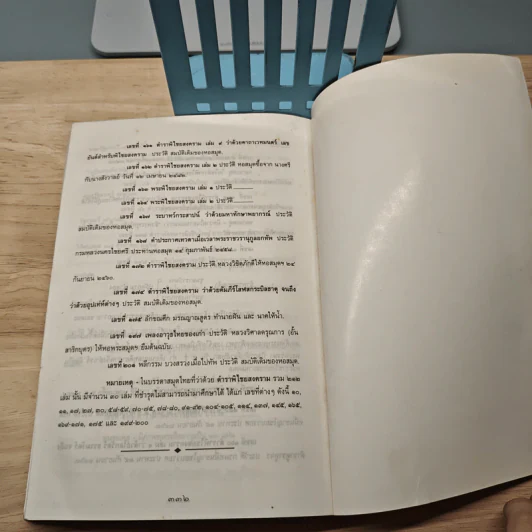 เลขที่ ๑๖๑ ตำราพิไชยสงคราม เล่ม ๙ ว่าด้วยคาถาเวทมนตร์ เลข
ยันต์สำหรับพิไชยสงคราม ประวัติ สมบัติเดิมของหอสมุด.
เลขที่ ๑๖๒ ตำราพิไชยสงคราม เล่ม ๒ ประวัติ หอสมุดซื้อจาก นางศรี
วันที่ ๑๒ เมษายน
เลขที่ ๑๖๓ พระพิไชยสงคราม เล่ม ๑ ประวัติ
เลขที่ ๑๖๔ พระพิไชยสงคราม เล่ม ๒ ประวัติ
เลขที่ ๑๖๗ ว่าด้วยมหาทักษาพยากรณ์ ประวัติ
สมบัติเดิมของหอสมุด
เลขที่ ๑๖๘ คำประกาศเทวดาเมื่อเวลาพระราชวรานุกูลยกทัพ ประวัติ
กรมหลวง ประทานหอสมุด ๑๙ กุมภาพันธ์
เลขที่ ๑๗๒ ตำราพิไชยสงคราม ประวัติ หอสมุดฯ ๒๔
กันยายน ๒๔๖๐.
เลขที่ ๑๗๔ ตำราพิไชยสงคราม ว่าด้วยคัมภีร์โลหสกธรณีสารธาตุ จนถึง
ว่าด้วยอุปเท่ห์ต่างๆ ประวัติ สมบัติเดิมของหอสมุด.
เลขที่ ๑๗๕ ลักขณศึก มรณญาณสูตร ทำนายฝัน และ นาคให้น้ำ.
เลขที่ ๑๙๗ เพลงอาวุธไทยของเก่า ประวัติ หลวงวิศาลดรุณการ (อั้น
สาริกบุตร) ให้หอพระสมุดฯ ยืมต้นฉบับ.
เลขที่ ๒๐๑ พลีกรรม บวงสรวงเมื่อไปทัพ ประวัติ สมบัติเดิมของหอสมุด.
หมายเหตุ - ในบรรดาสมุดไทยที่ว่าด้วย ตำราพิไชยสงคราม รวม ๒๑๒
เล่ม นั้น มีจำนวน ๓๐ เล่ม ที่ชำรุดไม่สามารถนำมาศึกษาได้ ได้แก่ เลขที่ต่างๆ ดังนี้ ๑๐,
๑๑, ๑๗, ๒๗, ๓๐, ๕๗-๕๙, ๗๐-๗๕, ๗๘-๘๐, ๙๑-๙๒, ๑๐๔-๑๐๕, ๑๑๔, ๑๓๗, ๑๔๕, ๑๖๕,
๑๗๕ และ ๑๙๙-๒๐๐
๓๓๒